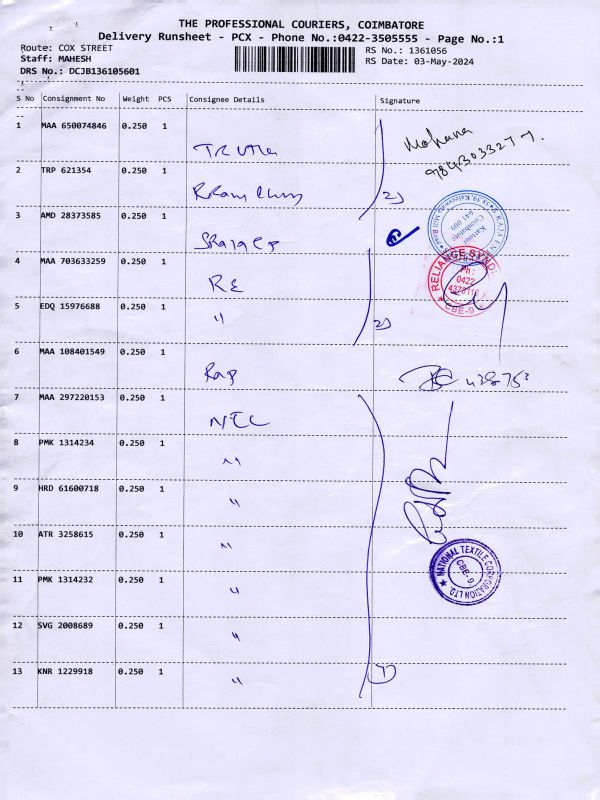 THE PROFESSIONAL COURIERS, COIMBATORE
Delivery Runsheet - PCX - Phone No.:0422-3505555 - Page No.:1
Route: COX STREET
RS No.: 1361056
Staff: MAHESH
RS Date: 03-May-2024
DRS No.: DCJB136105601
S No Consignment No Weight PCS Consignee Details Signature
1 MAA 650074846 0.250 1
Mohana
2 TRP 621354 0.250 1 2)
3 AMD 28373585 0.250 1
641 009
Coimbatore
4 MAA 703633259 0.250 1 RE
RELIANCE SYNDI
Ph:
0422
CBE-9
5 EDQ 15976688 0.250 1 " 2)
6 MAA 108401549 0.250 1
7 MAA 297220153 0.250 1 NTC
8 PMK 1314234 0.250 1 "
9 HRD 61600718 0.250 1 "
10 ATR 3258615 0.250 1 "
NATIONAL TEXTILE CORPORATION LTD.
CBE-9
11 PMK 1314232 0.250 1 "
12 SVG 2008689 0.250 1 "
13 KNR 1229918 0.250 1 " 7)